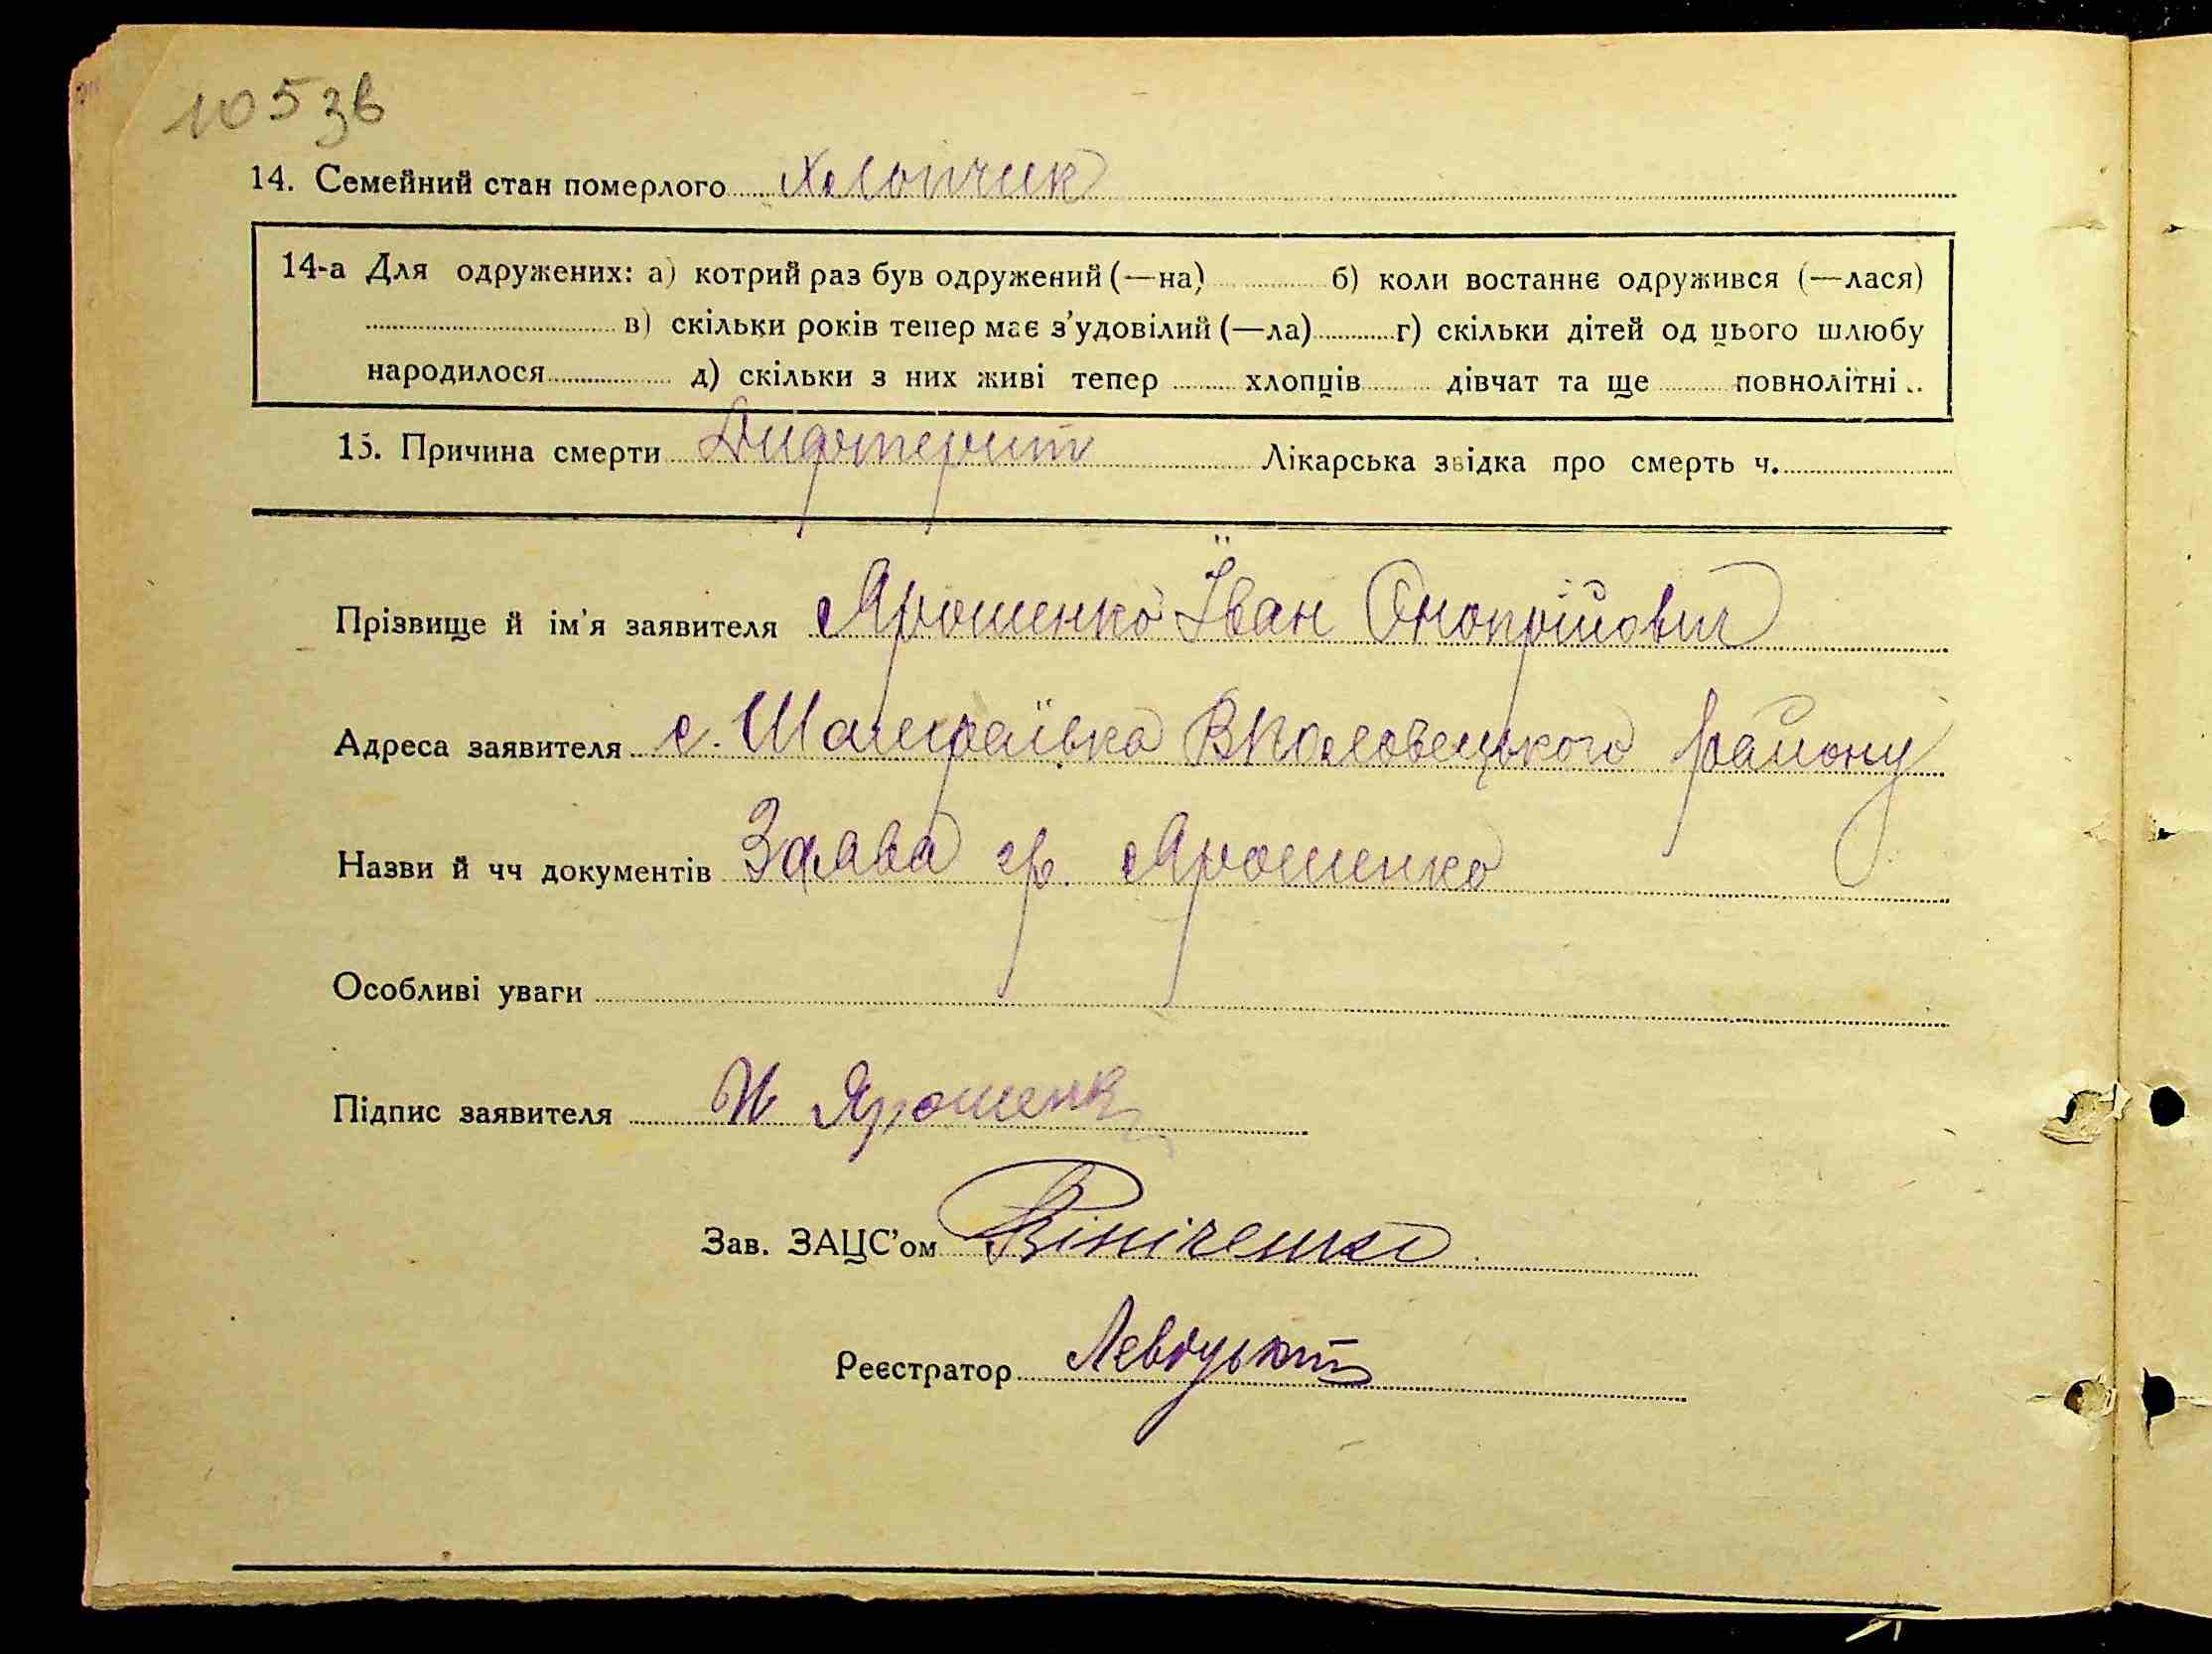 105 зв
14. Семейний стан померлого Хлопчик
14-а Для одружених: а) котрий раз був одружений (—на) б) коли востаннє одружився (—лася)
в) скільки років тепер має з’удовілий (—ла) г) скільки дітей од цього шлюбу
народилося д) скільки з них живі тепер хлопців дівчат та ще повнолітні
15. Причина смерти Дифтерит Лікарська звідка про смерть ч.
Прізвище й ім’я заявителя Ярошенко Іван Онопрійович
Адреса заявителя с. Шамраївка району
Назви й чч документів Заява гр. Ярошенко
Особливі уваги
Підпис заявителя И Ярошенк
Зав. ЗАЦС’ом Вініченко
Реєстратор